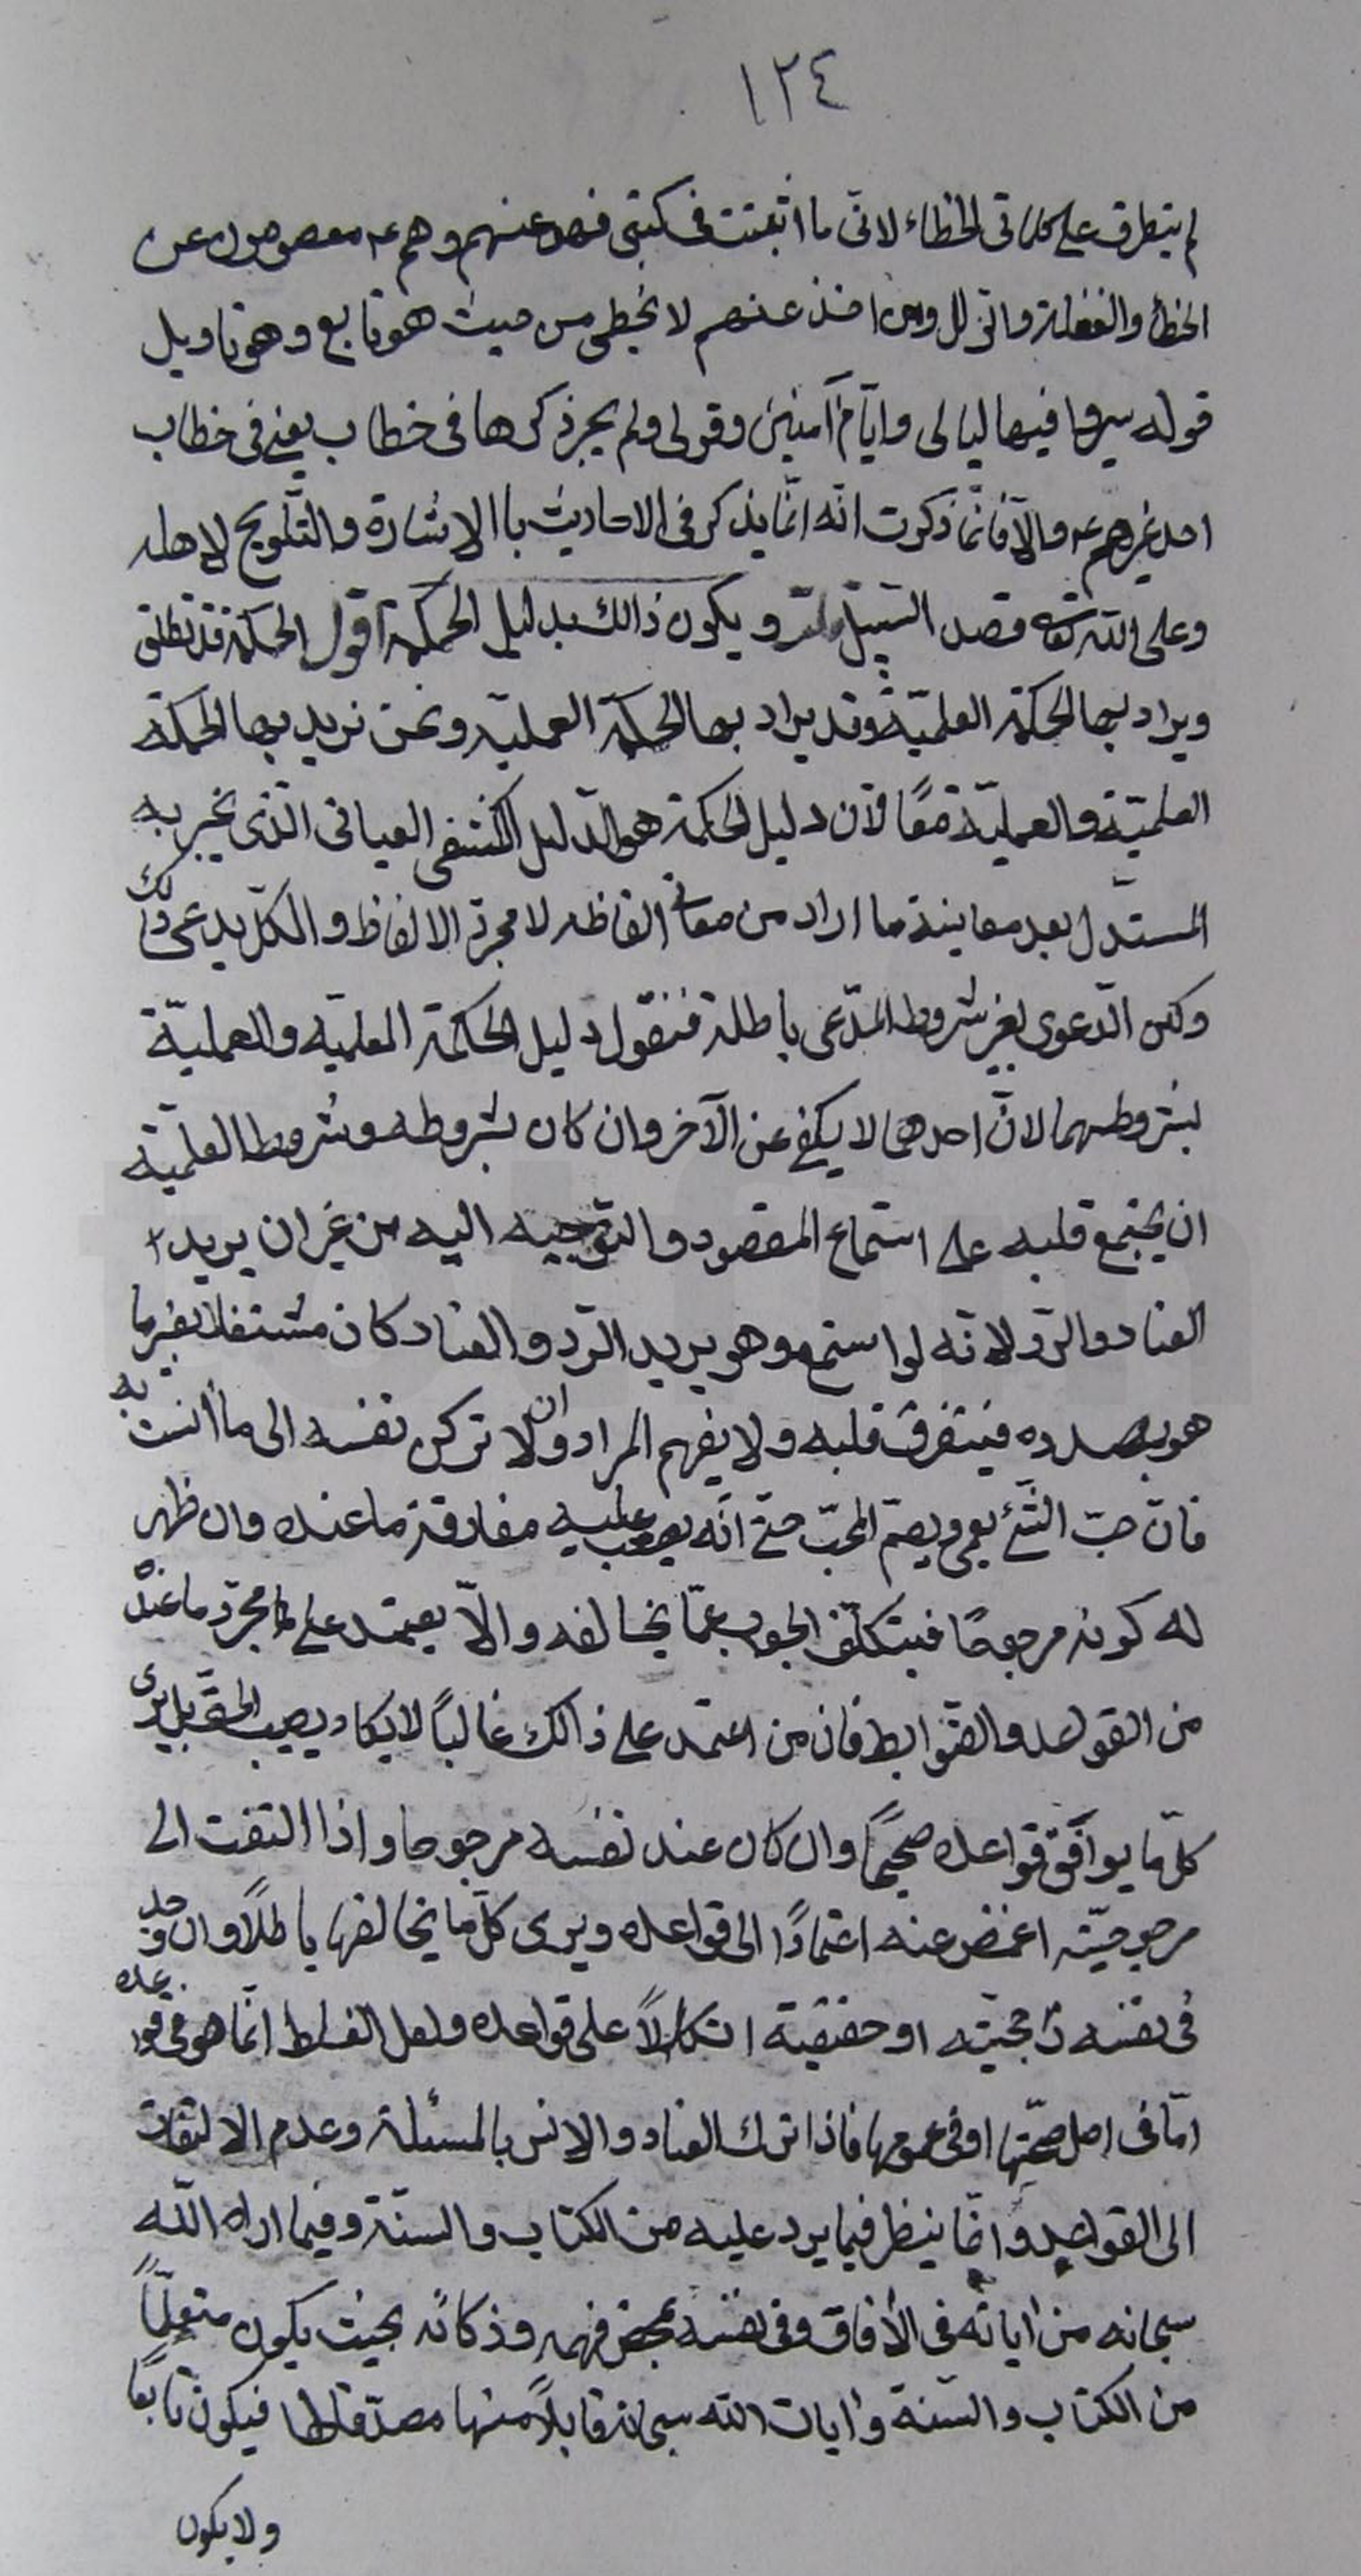 ١٢٤
لم يتطرق على كلماتى الخطاء لانى ما اثبتت فى كتبى فهو عنهم وهم ع معصومون عن
الخطأ والغفلة واتى اخذ عنهم لا يخطى من حيث هو تابع وهو تاويل
قوله سيروا فيها ليالى واياما آمنين وقولى ولم يجر ذكرها فى خطاب يعنى فى خطاب
احد غيرهم ع والا فانما ذكرت انه انما يذكر فى الاحاديث باالاشارة والتلويح لاهله
وعلى الله قصد السبيل ويكون ذالك بدليل الحكمة اقول الحكمة قد تطلق
ويراد بها الحكمة العلميّة وقد يراد بها الحكمة العمليّة ونحن نريد بها الحكمة
العلميّة والعمليّة معًا لان دليل الحكمة هو الدليل الكشفى العيانى الذى يخبر به
المستدل بعد معاينة ما اراد من معانى الفاظه لا مجرد الالفاظ والكل يدعى ذلك
ولكن الدعوى بغير شروط المدّعى باطلة فنقول دليل الحكمة العلميّه والعمليّة
بشروطهما لانّ احدهما لا يكفى عن الآخر وان كان بشروطه وشروط العلميّة
ان يجتمع قلبه على استماع المقصود والتوجيه اليه من غير ان يريد
العناد والرد لانه لو استمع وهو يريد الرّد والعناد كان مشتغلا بغير ما
هو بصدده فيتفرق قلبه ولا يفهم المراد وان لا تركن نفسه الى ما أنست به
فانّ حبّ الشئ يعمى ويصم المحبّ حتى انّه يصعب عليه مفارقة ما عنده وان ظهر
له كونه مرجوحًا فيتكلّف الجواب عمّا يخالفه والاّ يعتمد على مجرّد ما عنده
من القواعد والضوابط فان من اعتمد على ذالك غالبًا لا يكاد يصيب الحق بل يرى
كلّ ما يوافق قواعده صحيحًا وان كان عند نفسه مرجوحا واذا التفت الى
مرجوحيّته اغمض عنه اعتمادًا الى قواعده ويرى كلّ ما يخالفها باطلاً وان وجد
فى نفسه راجحيّته او حقيقية اتكالاً على قواعده ولعل الغلط انّما هو فى قواعده
امّا فى اصل صحّتها او فى عمومها فاذا ترك العناد والانس بالمسئلة وعدم الالتفات
الى القواعد وانّما ينظر فيما يرد عليه من الكتاب والسنّة وفيما اراه الله
سبحانه من آياته فى الأفاق وفى نفسه بمحض فهمه وذكائه بحيث يكون متعلّمًا
من الكتاب والسّنة وايات الله سبحانه قابلاً منها مصدّقا لها فيكون تابعًا
ولا يكون